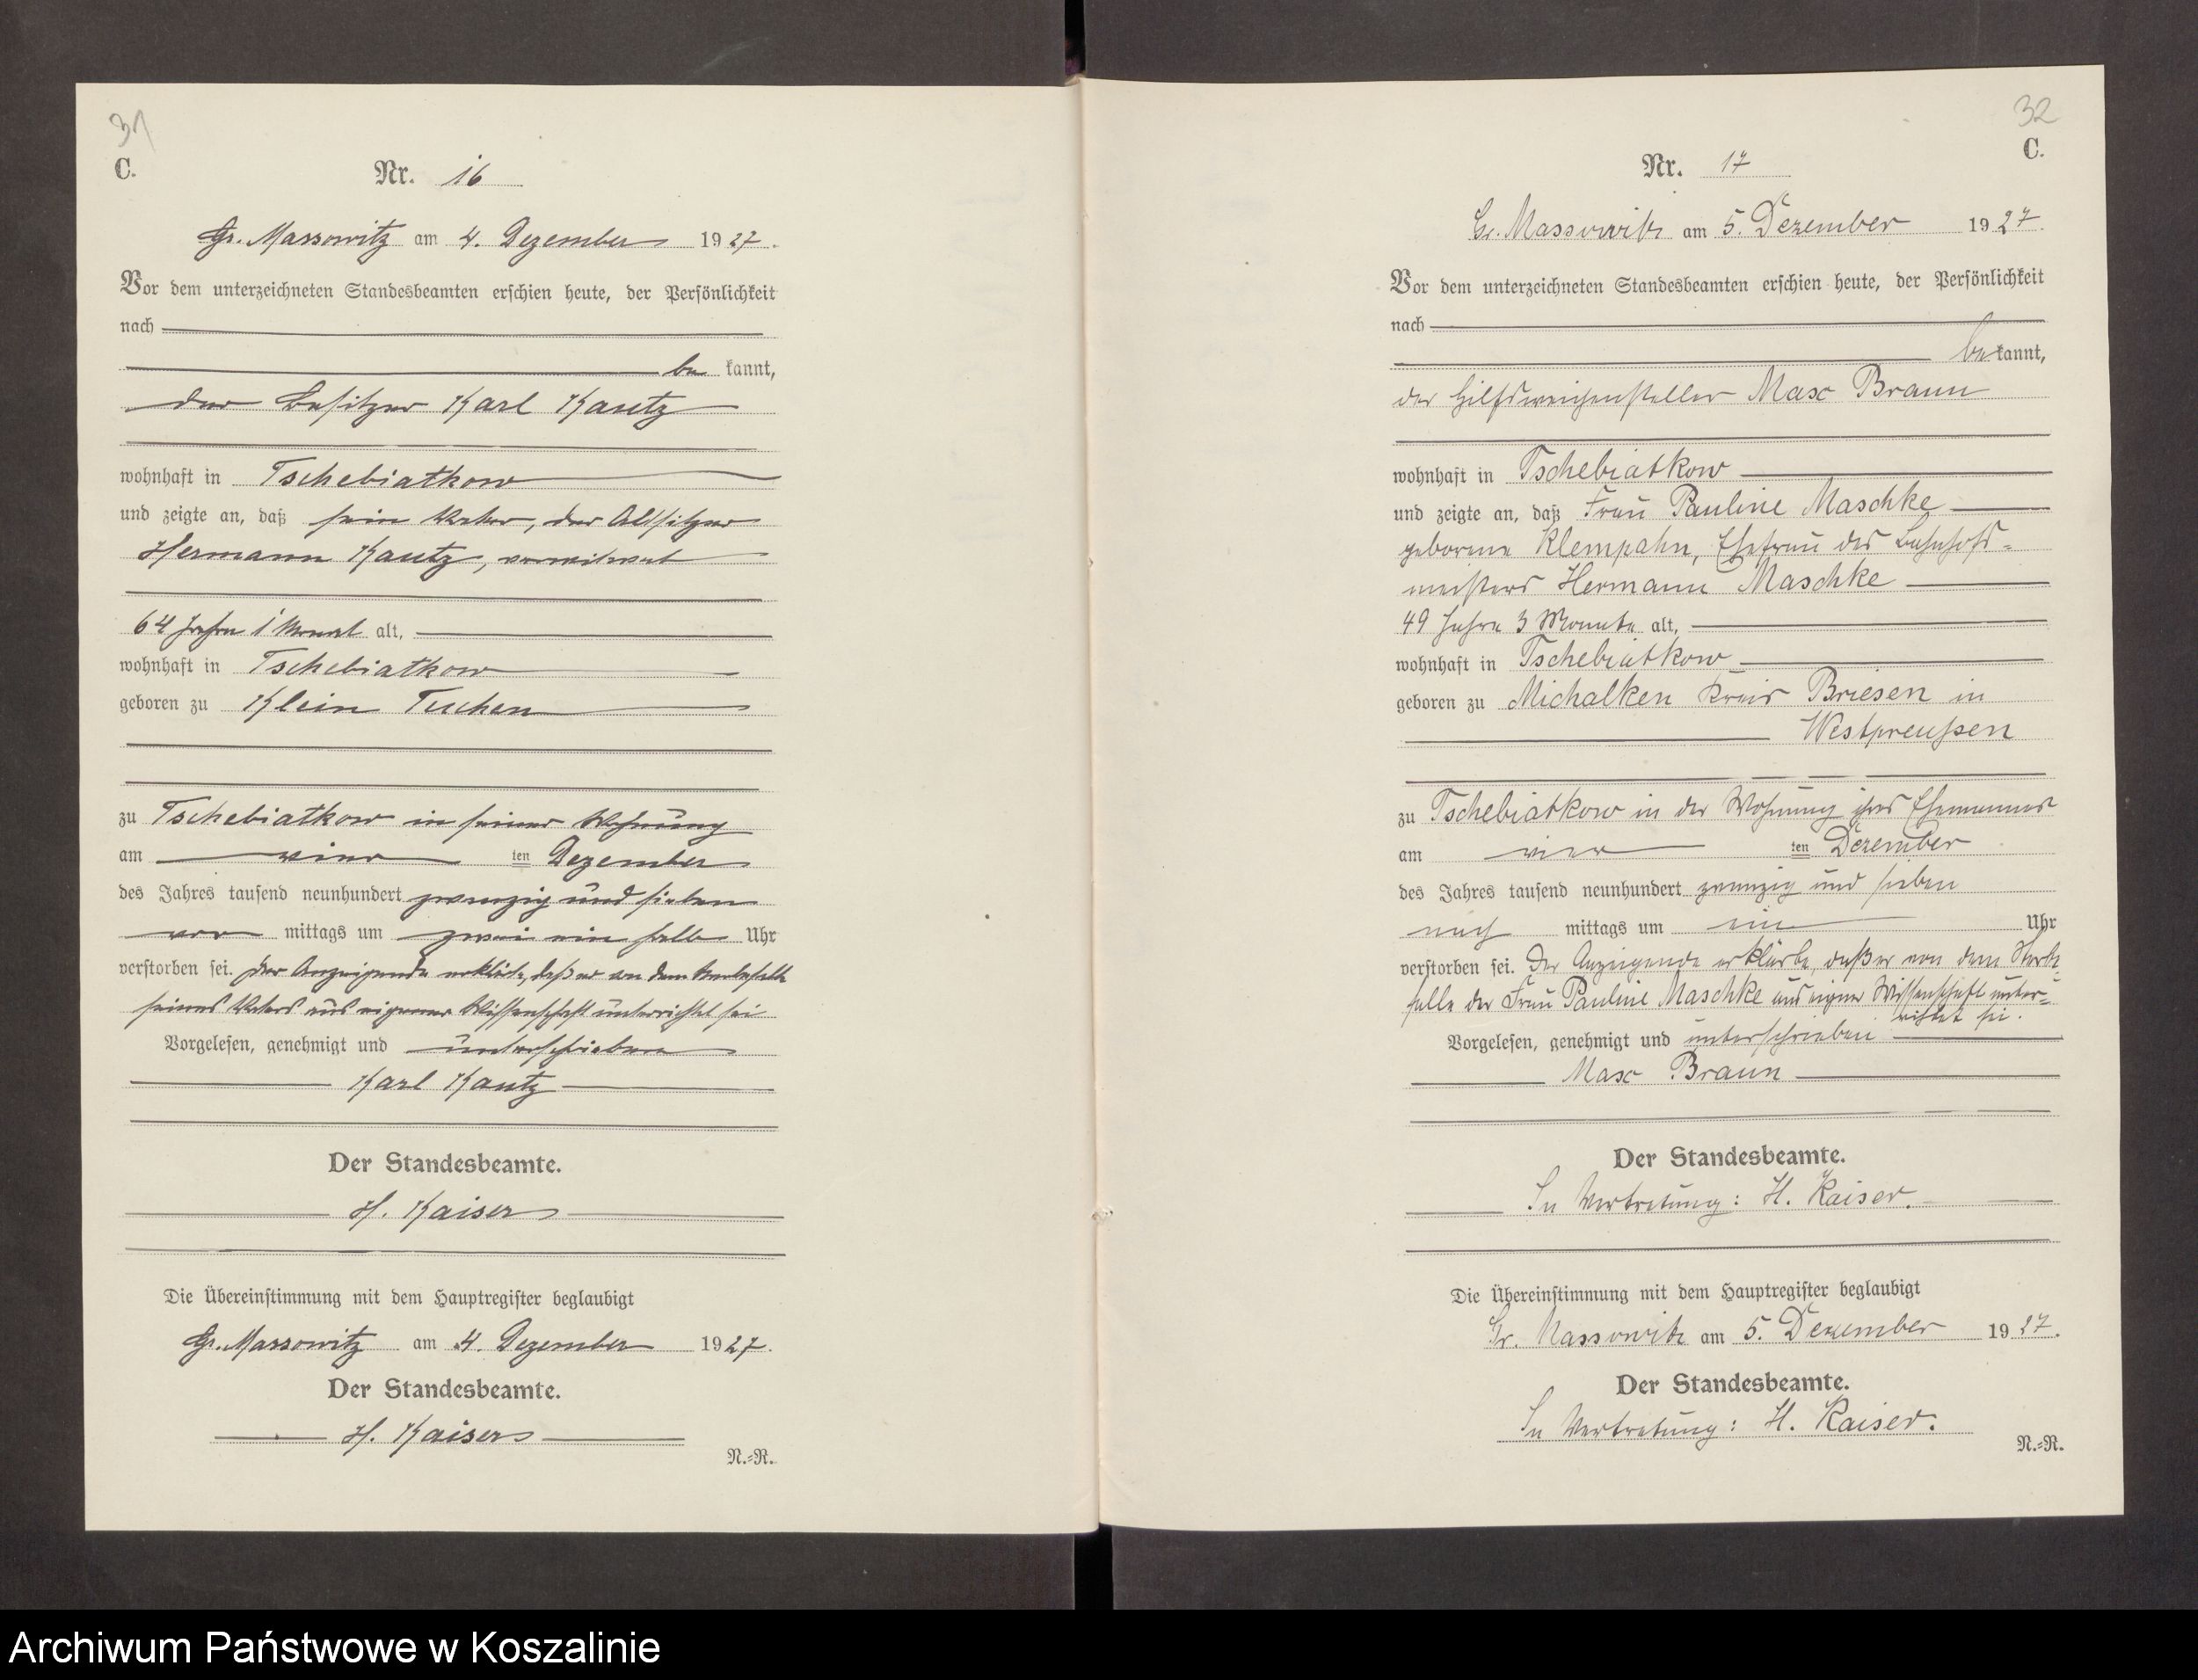 31
C.
Nr. 16
Gr. Massowitz am 4. Dezember 1927.
Vor dem unterzeichneten Standesbeamten erschien heute, der Persönlichkeit
nach
be kannt,
der Besitzer Karl Kautz
wohnhaft in Tschebiatkow
und zeigte an, daß sein Vater, der Altsitzer
Hermann Kautz, verwitwet
64 Jahre 1 Monat alt,
wohnhaft in Tschebiatkow
geboren zu Klein Tuchen
zu Tschebiatkow in seiner Wohnung
am vier ten Dezember
des Jahres tausend neunhundert zwanzig und sieben
vor mittags um zwei ein halb Uhr
verstorben sei. Der Anzeigende erklärte, daß er von dem Sterbefalle
seines Vaters aus eigener Wissenschaft unterrichtet sei
Vorgelesen, genehmigt und unterschrieben
Karl Kautz
Der Standesbeamte.
H. Kaiser
Die Übereinstimmung mit dem Hauptregister beglaubigt
Gr. Massowitz am 4. Dezember 1927.
Der Standesbeamte.
H. Kaiser
N.=R.
32
C.
Nr. 17
Gr. Massowitz am 5. Dezember 1927.
Vor dem unterzeichneten Standesbeamten erschien heute, der Persönlichkeit
nach
be kannt,
der Hilfsweichensteller Max Braun
wohnhaft in Tschebiatkow
und zeigte an, daß Frau Pauline Maschke
geborene Klempahn, Ehefrau des Bahnhofs=
meisters Hermann Maschke
49 Jahre 3 Monate alt,
wohnhaft in Tschebiatkow
geboren zu Michalken Kreis Briesen in
Westpreußen
zu Tschebiatkow in der Wohnung ihres Ehemannes
am vier ten Dezember
des Jahres tausend neunhundert zwanzig und sieben
nach mittags um ein Uhr
verstorben sei. Der Anzeigende erklärte, daß er von dem Sterbe=
falle der Frau Pauline Maschke aus eigner Wissenschaft unter=
richtet sei.
Vorgelesen, genehmigt und unterschrieben
Max Braun
Der Standesbeamte.
In Vertretung: H. Kaiser.
Die Übereinstimmung mit dem Hauptregister beglaubigt
Gr. Massowitz am 5. Dezember 1927.
Der Standesbeamte.
In Vertretung: H. Kaiser.
N.=R.
Archiwum Państwowe w Koszalinie